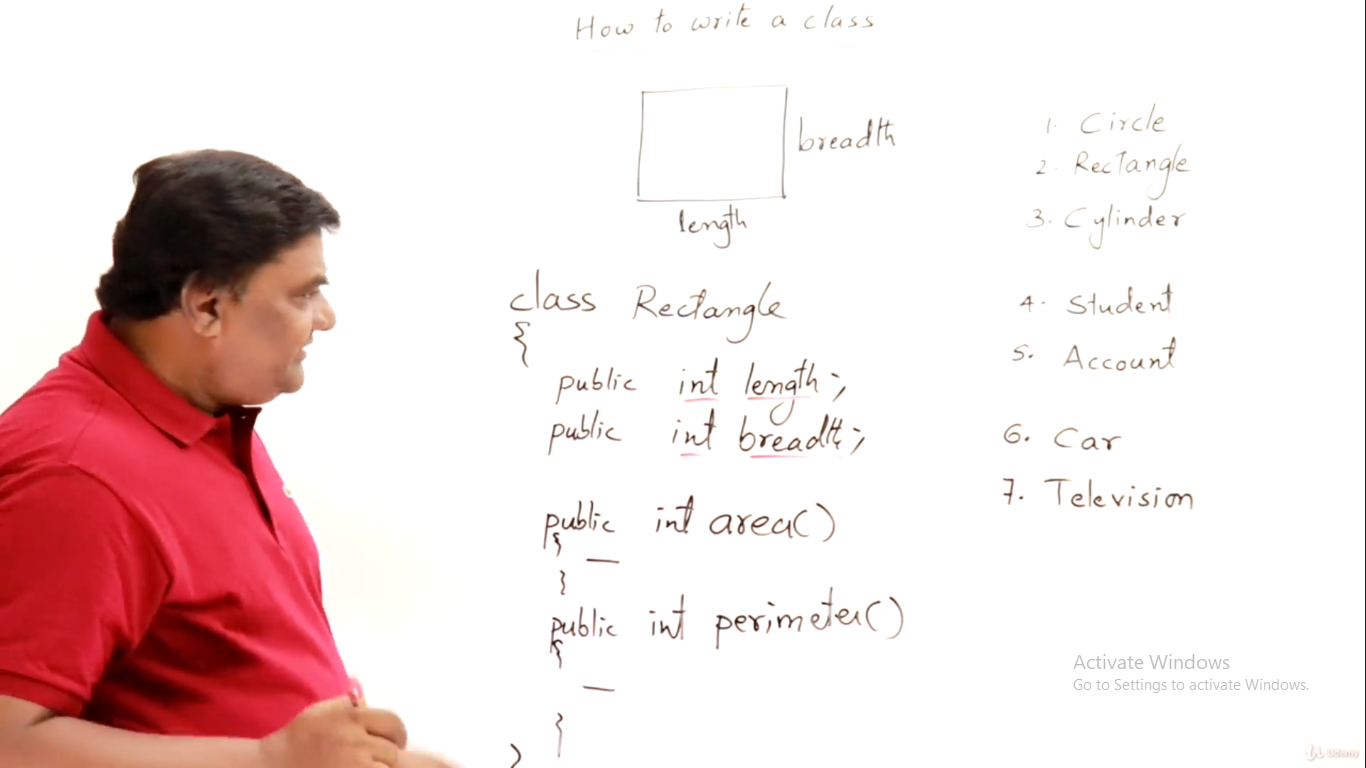 How to write a class
breadth
length
class Rectangle
{
public int length;
public int breadth;
public int area()
{
—
}
public int perimeter()
{
—
}
}
1. Circle
2. Rectangle
3. Cylinder
4. Student
5. Account
6. Car
7. Television
Activate Windows
Go to Settings to activate Windows.
Udemy